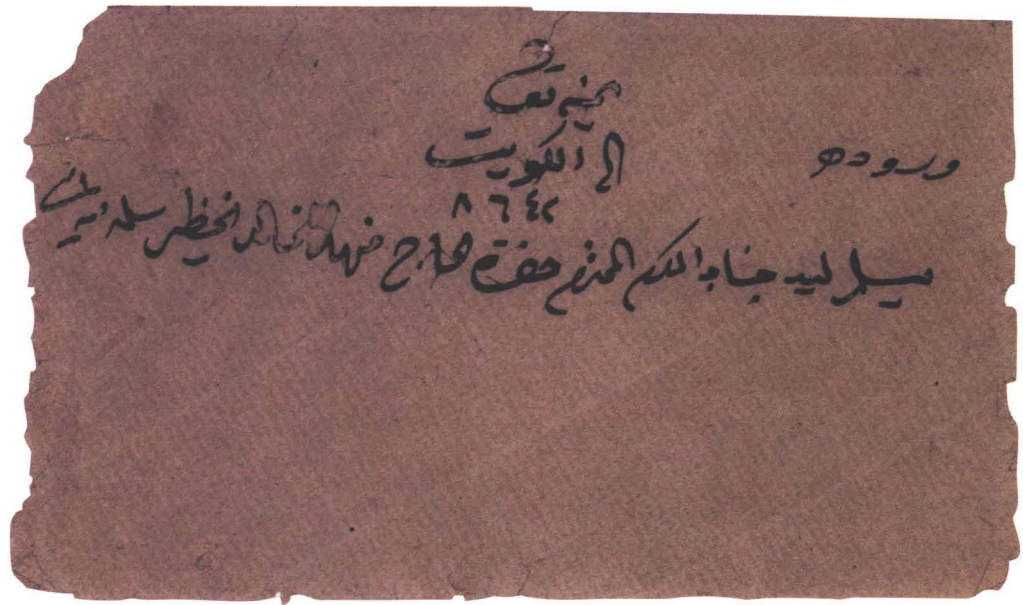 بمنه تعالى
الى الكويت
وسوده
٨٦٤٢
يسلم ليد جناب المكرم المحترم حضرة الحاج فهد الخالد الخظير سلمه